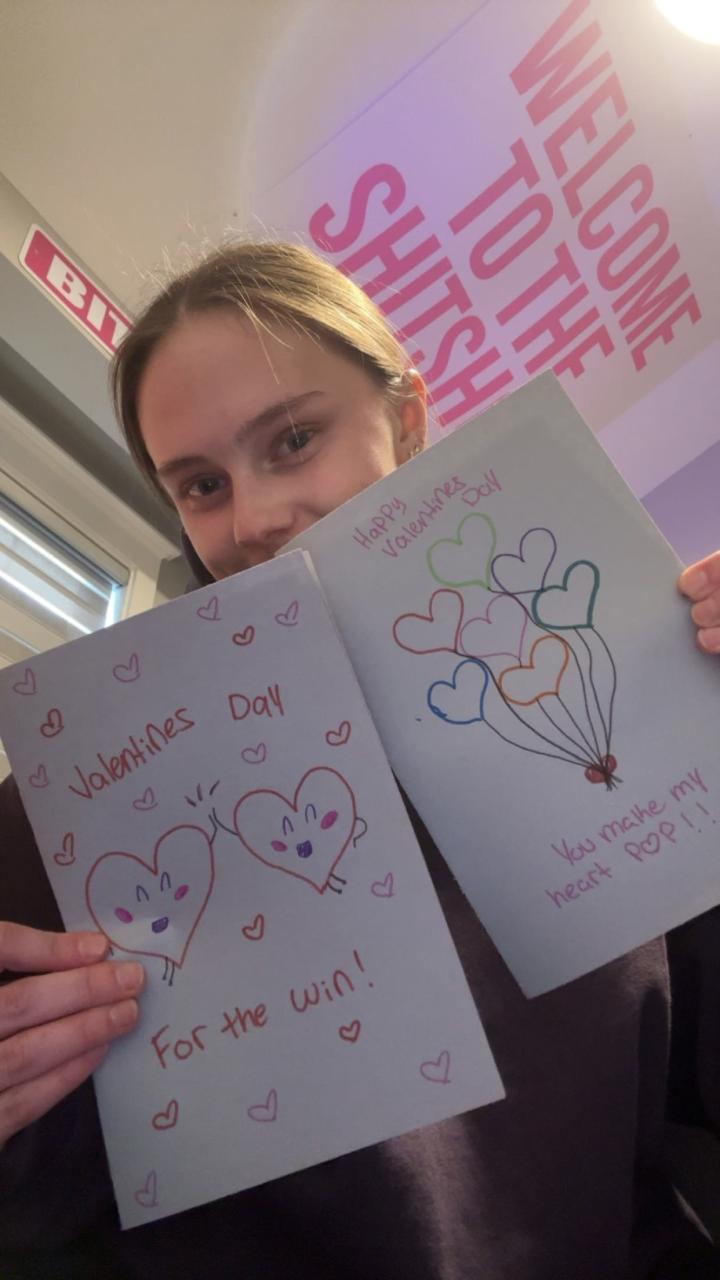 WELCOME
TO THE
SHITSH
BIT
Happy
Valentines Day
You make my
heart POP!!
Valentines Day
For the win!